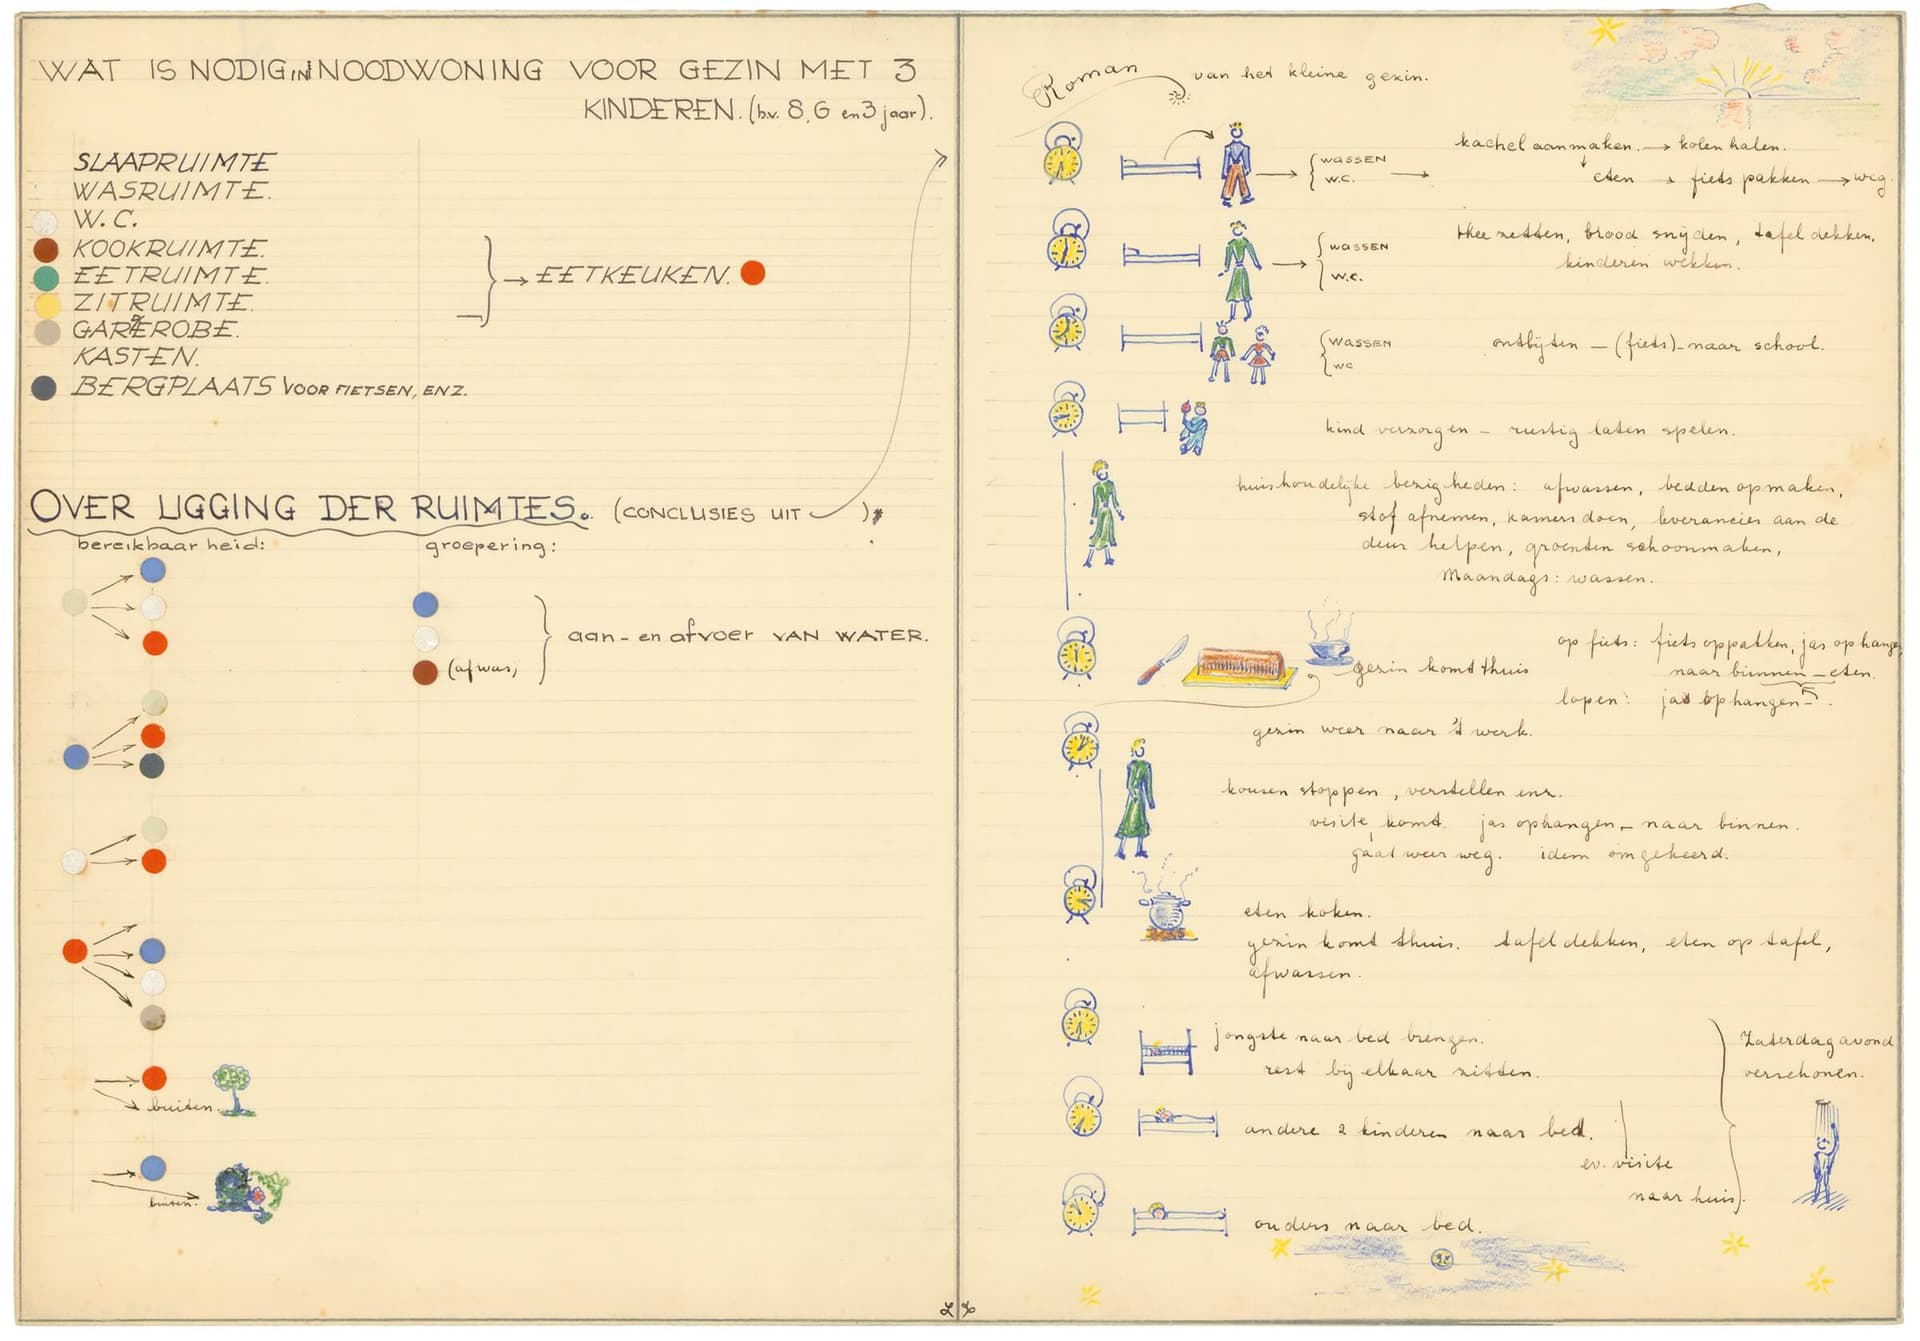 WAT IS NODIG IN NOODWONING VOOR GEZIN MET 3
KINDEREN. (b.v. 8, 6 en 3 jaar).
SLAAPRUIMTE
WASRUIMTE.
W.C.
KOOKRUIMTE.
EETRUIMTE. → EETKEUKEN.
ZITRUIMTE.
GARDEROBE.
KASTEN.
BERGPLAATS VOOR FIETSEN, ENZ.
OVER LIGGING DER RUIMTES. (CONCLUSIES UIT )
bereikbaarheid: groepering:
aan- en afvoer VAN WATER.
(afwas)
buiten.
buiten.
Roman van het kleine gezin.
WASSEN
W.C.
kachel aanmaken. → kolen halen.
eten → fiets pakken → weg.
WASSEN
W.C.
thee zetten, brood snijden, tafel dekken,
kinderen wekken.
WASSEN
WC
ontbijten – (fiets) – naar school.
kind verzorgen – rustig laten spelen.
huishoudelijke bezigheden: afwassen, bedden opmaken,
stof afnemen, kamers doen, leverancier aan de
deur helpen, groenten schoonmaken,
Maandags: wassen.
gezin komt thuis
op fiets: fiets oppakken, jas ophangen
naar binnen – eten.
lopen: jas ophangen – .
gezin weer naar 't werk.
kousen stoppen, verstellen enz.
visite komt. jas ophangen – naar binnen.
gaat weer weg. idem omgekeerd.
eten koken.
gezin komt thuis. tafel dekken, eten op tafel,
afwassen.
jongste naar bed brengen.
rest bij elkaar zitten.
Zaterdagavond
verschonen.
andere 2 kinderen naar bed.
ev. visite
naar huis.
ouders naar bed.